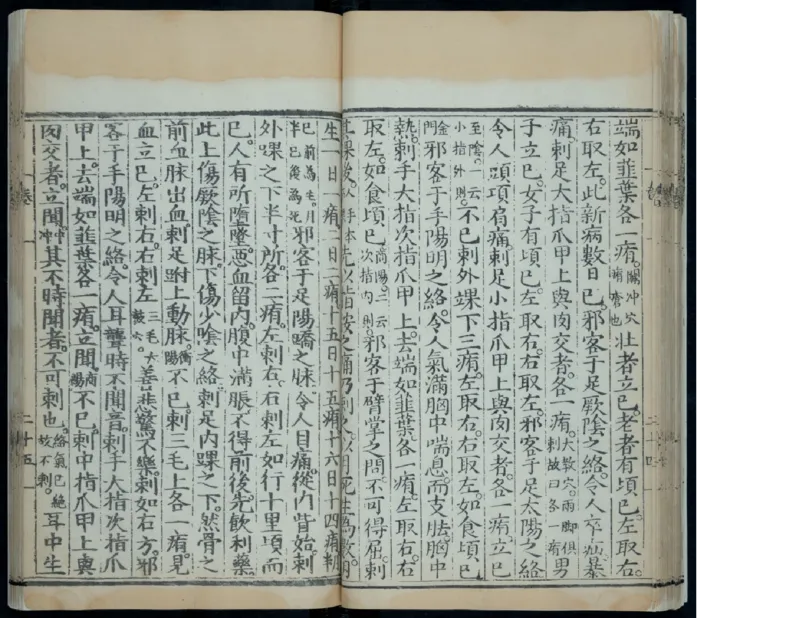 端如韭葉各一痏。關冲穴痏瘡也壯者立已。老者有頃已。左取右。
右取左。此新病數日已。邪客于足厥陰之絡。令人卒疝暴
痛刺足大指爪甲上與肉交者。各一痏。大敦穴。兩脚俱刺故曰各一痏男
子立已。女子有頃已。左取右。右取左。邪客于足太陽之絡
令人頭項肩痛刺足小指爪甲上與肉交者。各一痏。立已
至陰。一云小指外側。不已刺外踝下三痏。左取右。右取左。如食頃已
金門邪客于手陽明之絡。令人氣滿胸中喘息。而支胠胸中
熱。刺手大指次指爪甲上。去端如韭葉各一痏。左取右。右
取左。如食頃已商陽。一云次指内側。邪客于臂掌之間。不可得屈。刺
其踝後。先以指按之痛乃刺之。以月死生爲數。月
二十四
生一日一痏。二日二痏。十五日十五痏。十六日十四痏。
已前爲生。月半已後爲死邪客于足陽蹻之脉。令人目痛。從内眥始。刺
外踝之下半寸所。各二痏。左刺右。右刺左。如行十里頃而
已。人有所墮墜。惡血留内。腹中滿脹。不得前後。先飲利藥
此上傷厥陰之脉。下傷少陰之絡。刺足内踝之下。然骨之
前血脉出血。刺足跗上動脉。衝陽不已。刺三毛上各一痏。見
血立已。左刺右。右刺左三毛大敦穴。善悲驚不樂。刺如右方。邪
客于手陽明之絡。令人耳聾時不聞音。刺手大指次指爪
甲上。去端如韭葉各一痏。立聞。商陽不已。刺中指爪甲上與
肉交者。立聞。中冲其不時聞者。不可刺也。絡氣已絕故不刺。耳中生
卷一
二十五